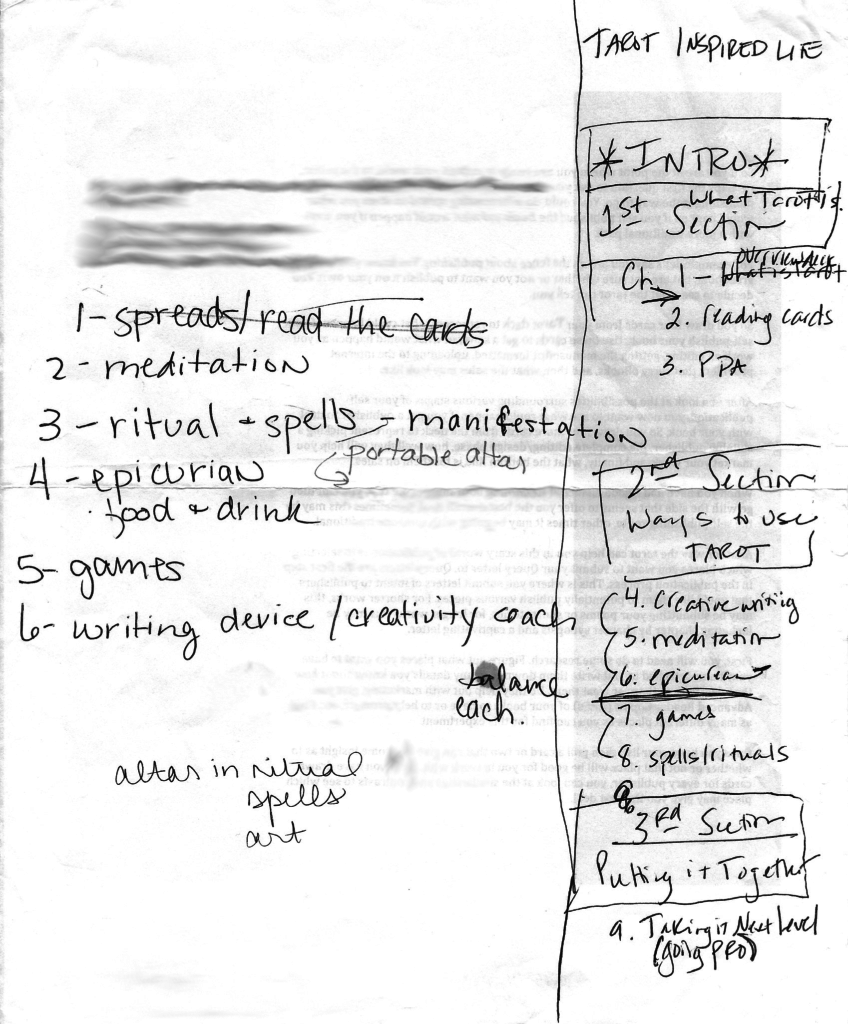 1 - spreads/read the cards
2 - meditation
3 - ritual + spells - manifestation
portable altar
4 - epicurian
· food + drink
5 - games
6 - writing device / creativity coach
balance
each.
altar in ritual
spells
art
TAROT INSPIRED LIFE
*INTRO*
What Tarot is.
1st Section
overview deck
Ch 1 - What is tarot
2. reading cards
3. PPA
2nd Section
Ways to use
TAROT
4. Creative writing
5. meditation
6. epicurean
7. games
8. spells/rituals
3rd Section
Putting it Together
9. Taking it Next Level
(going pro)